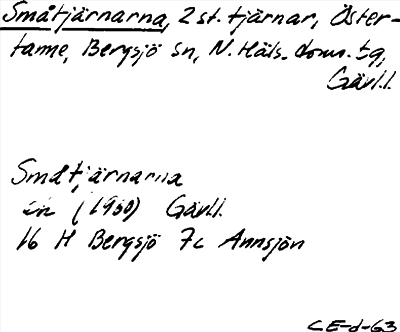 Småtjärnarna, 2 st. tjärnar, Öster-
tanne, Bergsjö sn, N. Häls. doms. tg,
Gävl.l.
Småtjärnarna
(1950) Gävl.l.
16 H Bergsjö 7c Annsjön
CE-d-63